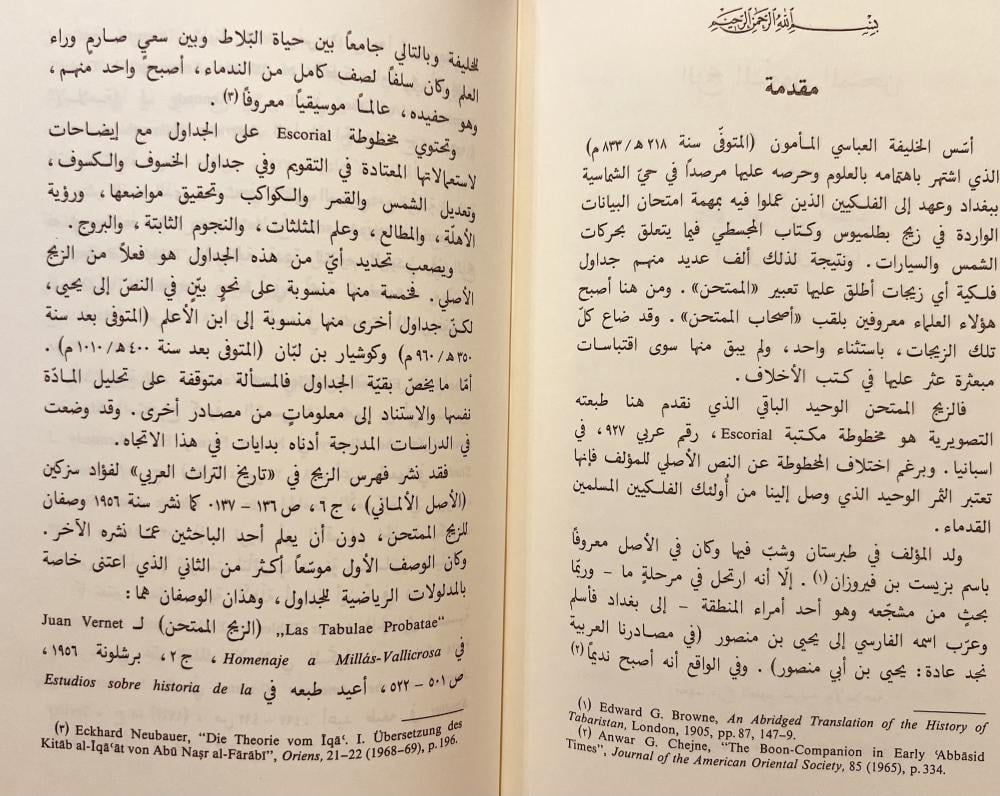 بسم الله الرحمن الرحيم
مقدمة
أسّس الخليفة العباسي المأمون (المتوفّى سنة ٢١٨ ه/٨٣٣ م)
الذي اشتهر باهتمامه بالعلوم وحرصه عليها مرصداً في حيّ الشماسية
ببغداد وعهد إلى الفلكيين الذين عملوا فيه بمهمة امتحان البيانات
الواردة في زيج بطلميوس وكتاب المجسطي فيما يتعلق بحركات
الشمس والسيارات. ونتيجة لذلك ألف عديد منهم جداول
فلكية أي زيجات أطلق عليها تعبير «الممتحن». ومن هنا أصبح
هؤلاء العلماء معروفين بلقب «أصحاب الممتحن». وقد ضاع كلّ
تلك الزيجات، باستثناء واحد، ولم يبق منها سوى اقتباسات
مبعثرة عثر عليها في كتب الأخلاف.
فالزيج الممتحن الوحيد الباقي الذي نقدم هنا طبعته
التصويرية هو مخطوطة مكتبة Escorial، رقم عربي ٩٢٧، في
اسبانيا. وبرغم اختلاف المخطوطة عن النص الأصلي للمؤلف فإنها
تعتبر الثمر الوحيد الذي وصل إلينا من أولئك الفلكيين المسلمين
القدماء.
ولد المؤلف في طبرستان وشبّ فيها وكان في الأصل معروفاً
باسم بزيست بن فيروزان(١). إلّا أنه ارتحل في مرحلةٍ ما - وربّما
بحثٍ من مشجّعه وهو أحد أمراء المنطقة - إلى بغداد فأسلم
وعرّب اسمه الفارسي إلى يحيى بن منصور (في مصادرنا العربية
نجد عادة: يحيى بن أبي منصور). وفي الواقع أنه أصبح نديماً(٢)
(١) Edward G. Browne, An Abridged Translation of the History of
Tabaristan, London, 1905, pp. 87, 147-9.
(٢) Anwar G. Chejne, "The Boon-Companion in Early ʿAbbāsid
Times", Journal of the American Oriental Society, 85 (1965), p. 334.
للخليفة وبالتالي جامعاً بين حياة البّلاط وبين سعيٍ صارمٍ وراء
العلم وكان سلفاً لصف كامل من الندماء، أصبح واحد منهم،
وهو حفيده، عالماً موسيقياً معروفاً(٣).
وتحتوي مخطوطة Escorial على الجداول مع إيضاحات
لاستعمالاتها المعتادة في التقويم وفي جداول الخسوف والكسوف،
وتعديل الشمس والقمر والكواكب وتحقيق مواضعها، ورؤية
الأهلّة، والمطالع، وعلم المثلثات، والنجوم الثابتة، والبروج.
ويصعب تحديد أيّ من هذه الجداول هو فعلاً من الزيج
الأصلي. فخمسة منها منسوبة على نحوٍ بيّنٍ في النصّ إلى يحيى،
لكنّ جداول أخرى منها منسوبة إلى ابن الأعلم (المتوفى بعد سنة
٣٥٠ ه/٩٦٠ م) وكوشيار بن لبّان (المتوفى بعد سنة ٤٠٠ ه/١٠١٠ م).
أمّا ما يخصّ بقيّة الجداول فالمسألة متوقفة على تحليل المادّة
نفسها والاستناد إلى معلوماتٍ من مصادر أخرى. وقد وضعت
في الدراسات المدرجة أدناه بدايات في هذا الاتجاه.
فقد نشر فهرس الزيج في «تاريخ التراث العربي» لفؤاد سزكين
(الأصل الألماني)، ج ٦، ص ١٣٦ - ١٣٧. كما نشر سنة ١٩٥٦ وصفان
للزيج الممتحن، دون أن يعلم أحد الباحثين عمّا نشره الآخر.
وكان الوصف الأول موسّعاً أكثر من الثاني الذي اعتنى خاصة
بالمدلولات الرياضية للجداول، وهذان الوصفان هما:
"Las Tabulae Probatae" (الزيج الممتحن) لـ Juan Vernet
في Homenaje a Millás-Vallicrosa، ج ٢، برشلونة ١٩٥٦،
ص ٥٠١ - ٥٢٢، أعيد طبعه في Estudios sobre historia de la
(٣) Eckhard Neubauer, "Die Theorie vom Iqāʿ. I. Übersetzung des
Kitāb al-Iqāʿāt von Abū Naṣr al-Fārābī", Oriens, 21-22 (1968-69), p. 196.